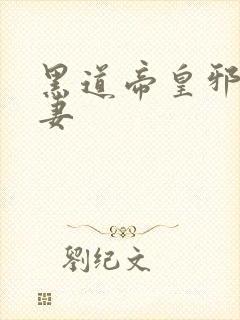 黑道帝皇邪
妻
劉纪文